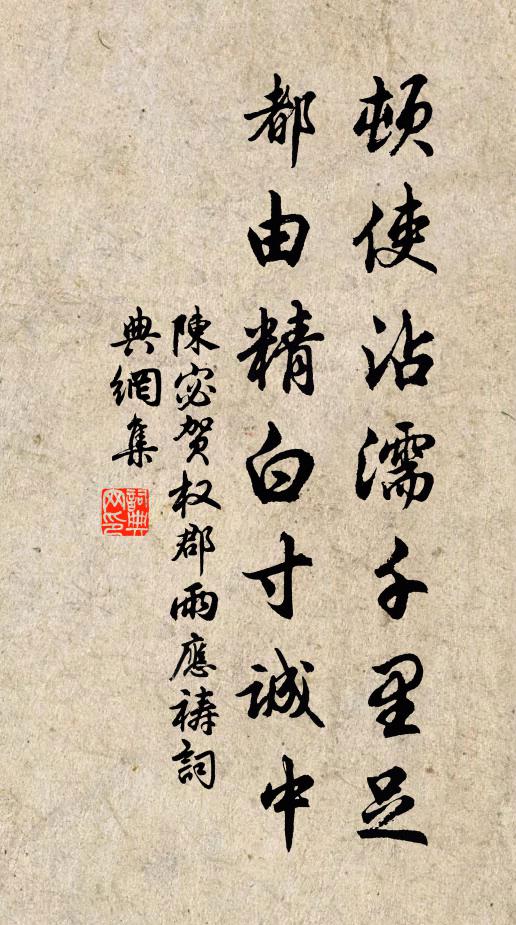 頓使沾濡千里足
都由精白寸誠中
陳宓賀权郡雨應禱詞
典網集
詞典网印